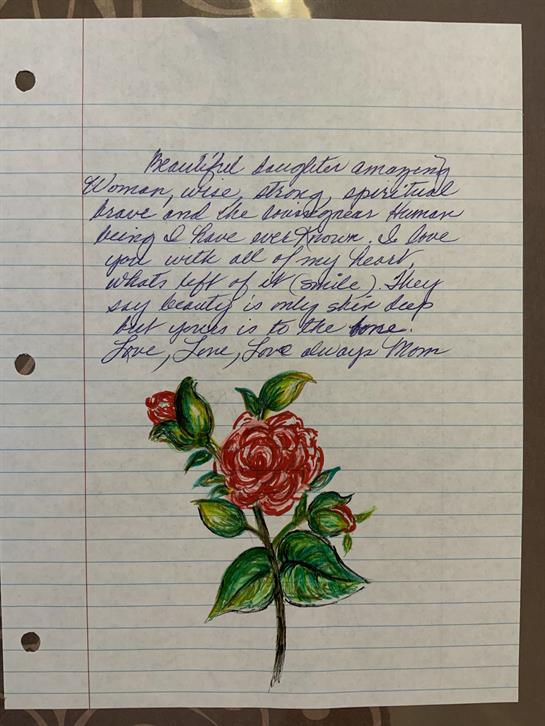 Beautiful daughter amazing
Woman, wise, strong, spiritual
brave and the Human
being I have ever known. I love
you with all of my heart
whats left of it (smile). They
say beauty is only skin deep
but yours is to the bone.
Love, Love, Love always Mom